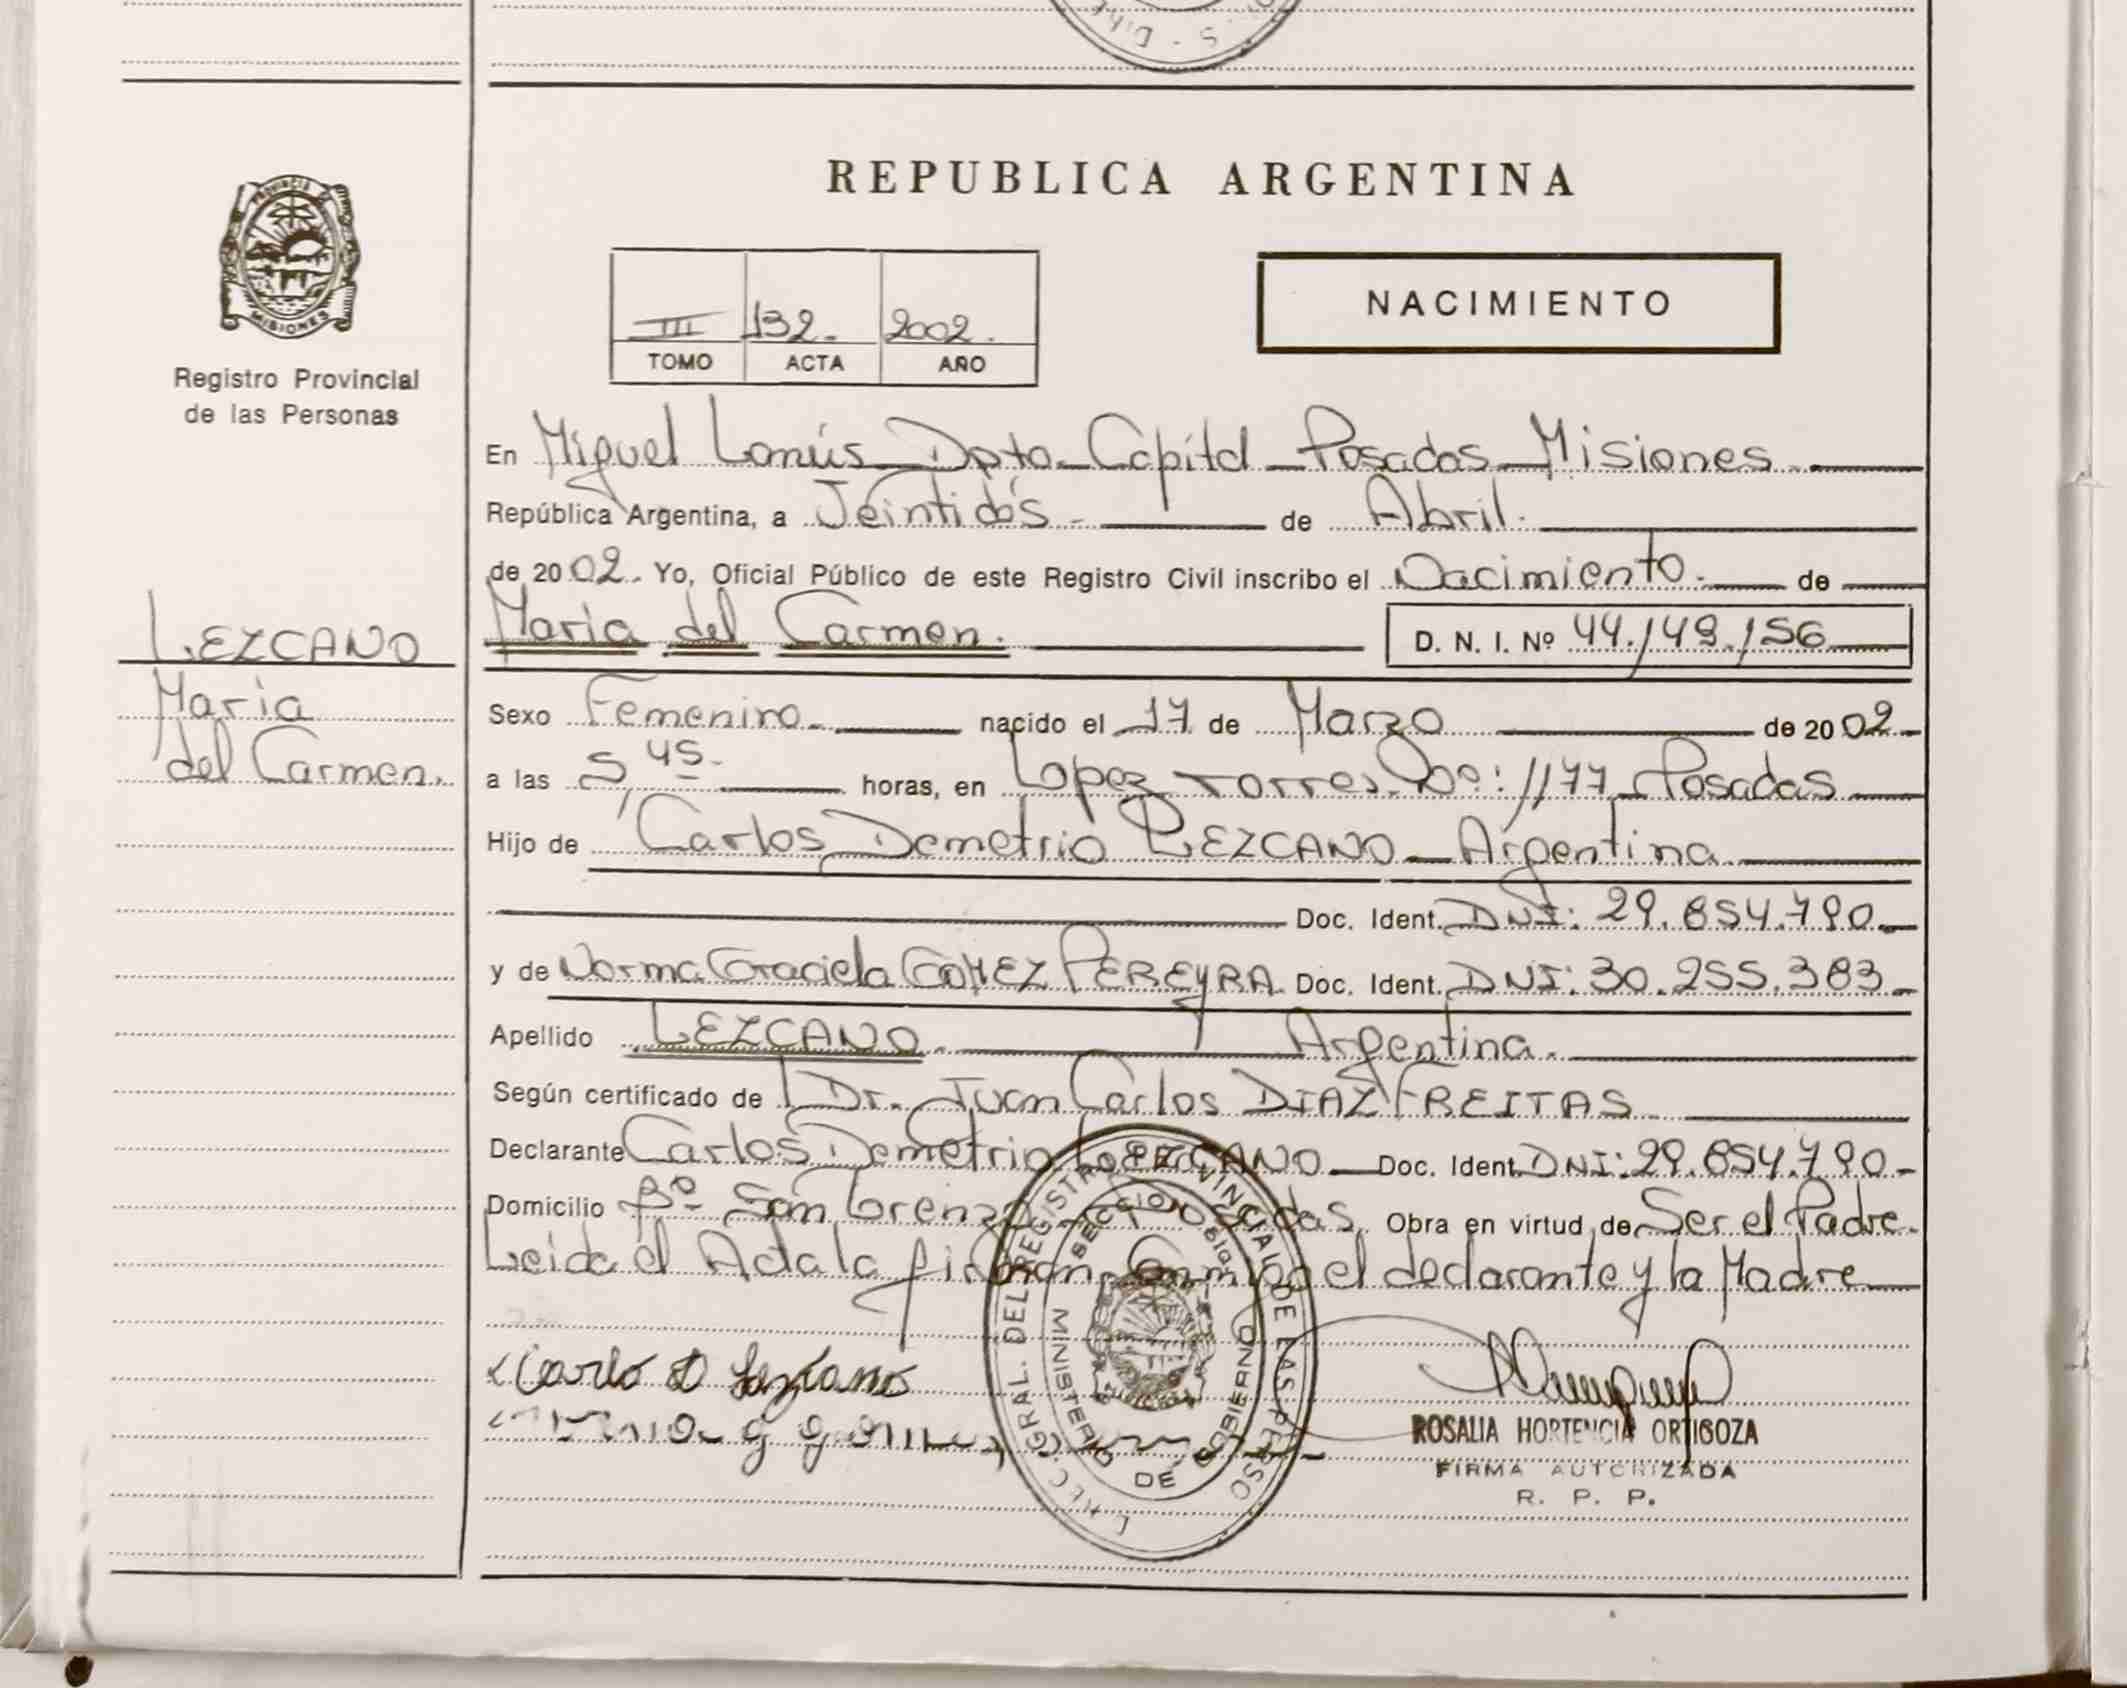 REPUBLICA ARGENTINA
PROVINCIA DE
MISIONES
Registro Provincial
de las Personas
III 132. 2002.
TOMO ACTA AÑO
NACIMIENTO
En Miguel Lanús Dpto. Capital Posadas Misiones.
República Argentina, a Veintidós de Abril.
de 2002. Yo, Oficial Público de este Registro Civil inscribo el Nacimiento. de
LEZCANO
Maria
del Carmen.
Maria del Carmen. D. N. I. Nº 44.149.156
Sexo Femenino nacido el 17 de Marzo de 2002
a las 5,45 horas, en Lopez Torres Nº: 1177 Posadas
Hijo de Carlos Demetrio LEZCANO Argentina
Doc. Ident. DNI: 29.854.790
y de Norma Graciela GOMEZ PEREYRA Doc. Ident. DNI: 30.255.383
Apellido LEZCANO. Argentina.
Según certificado de Dr. Juan Carlos DIAZ FREITAS
Declarante Carlos Demetrio LEZCANO Doc. Ident. DNI: 29.854.790
Domicilio Bº San Lorenzo Posadas. Obra en virtud de Ser el Padre.
Leida el Acta la firman Conmigo el declarante y la Madre
Carlo D Lezcano
DEL REGISTRO PROVINCIAL DE LAS PERSO
MINISTERIO DE GOBIERNO
ROSALIA HORTENCIA ORTIGOZA
FIRMA AUTORIZADA
R. P. P.